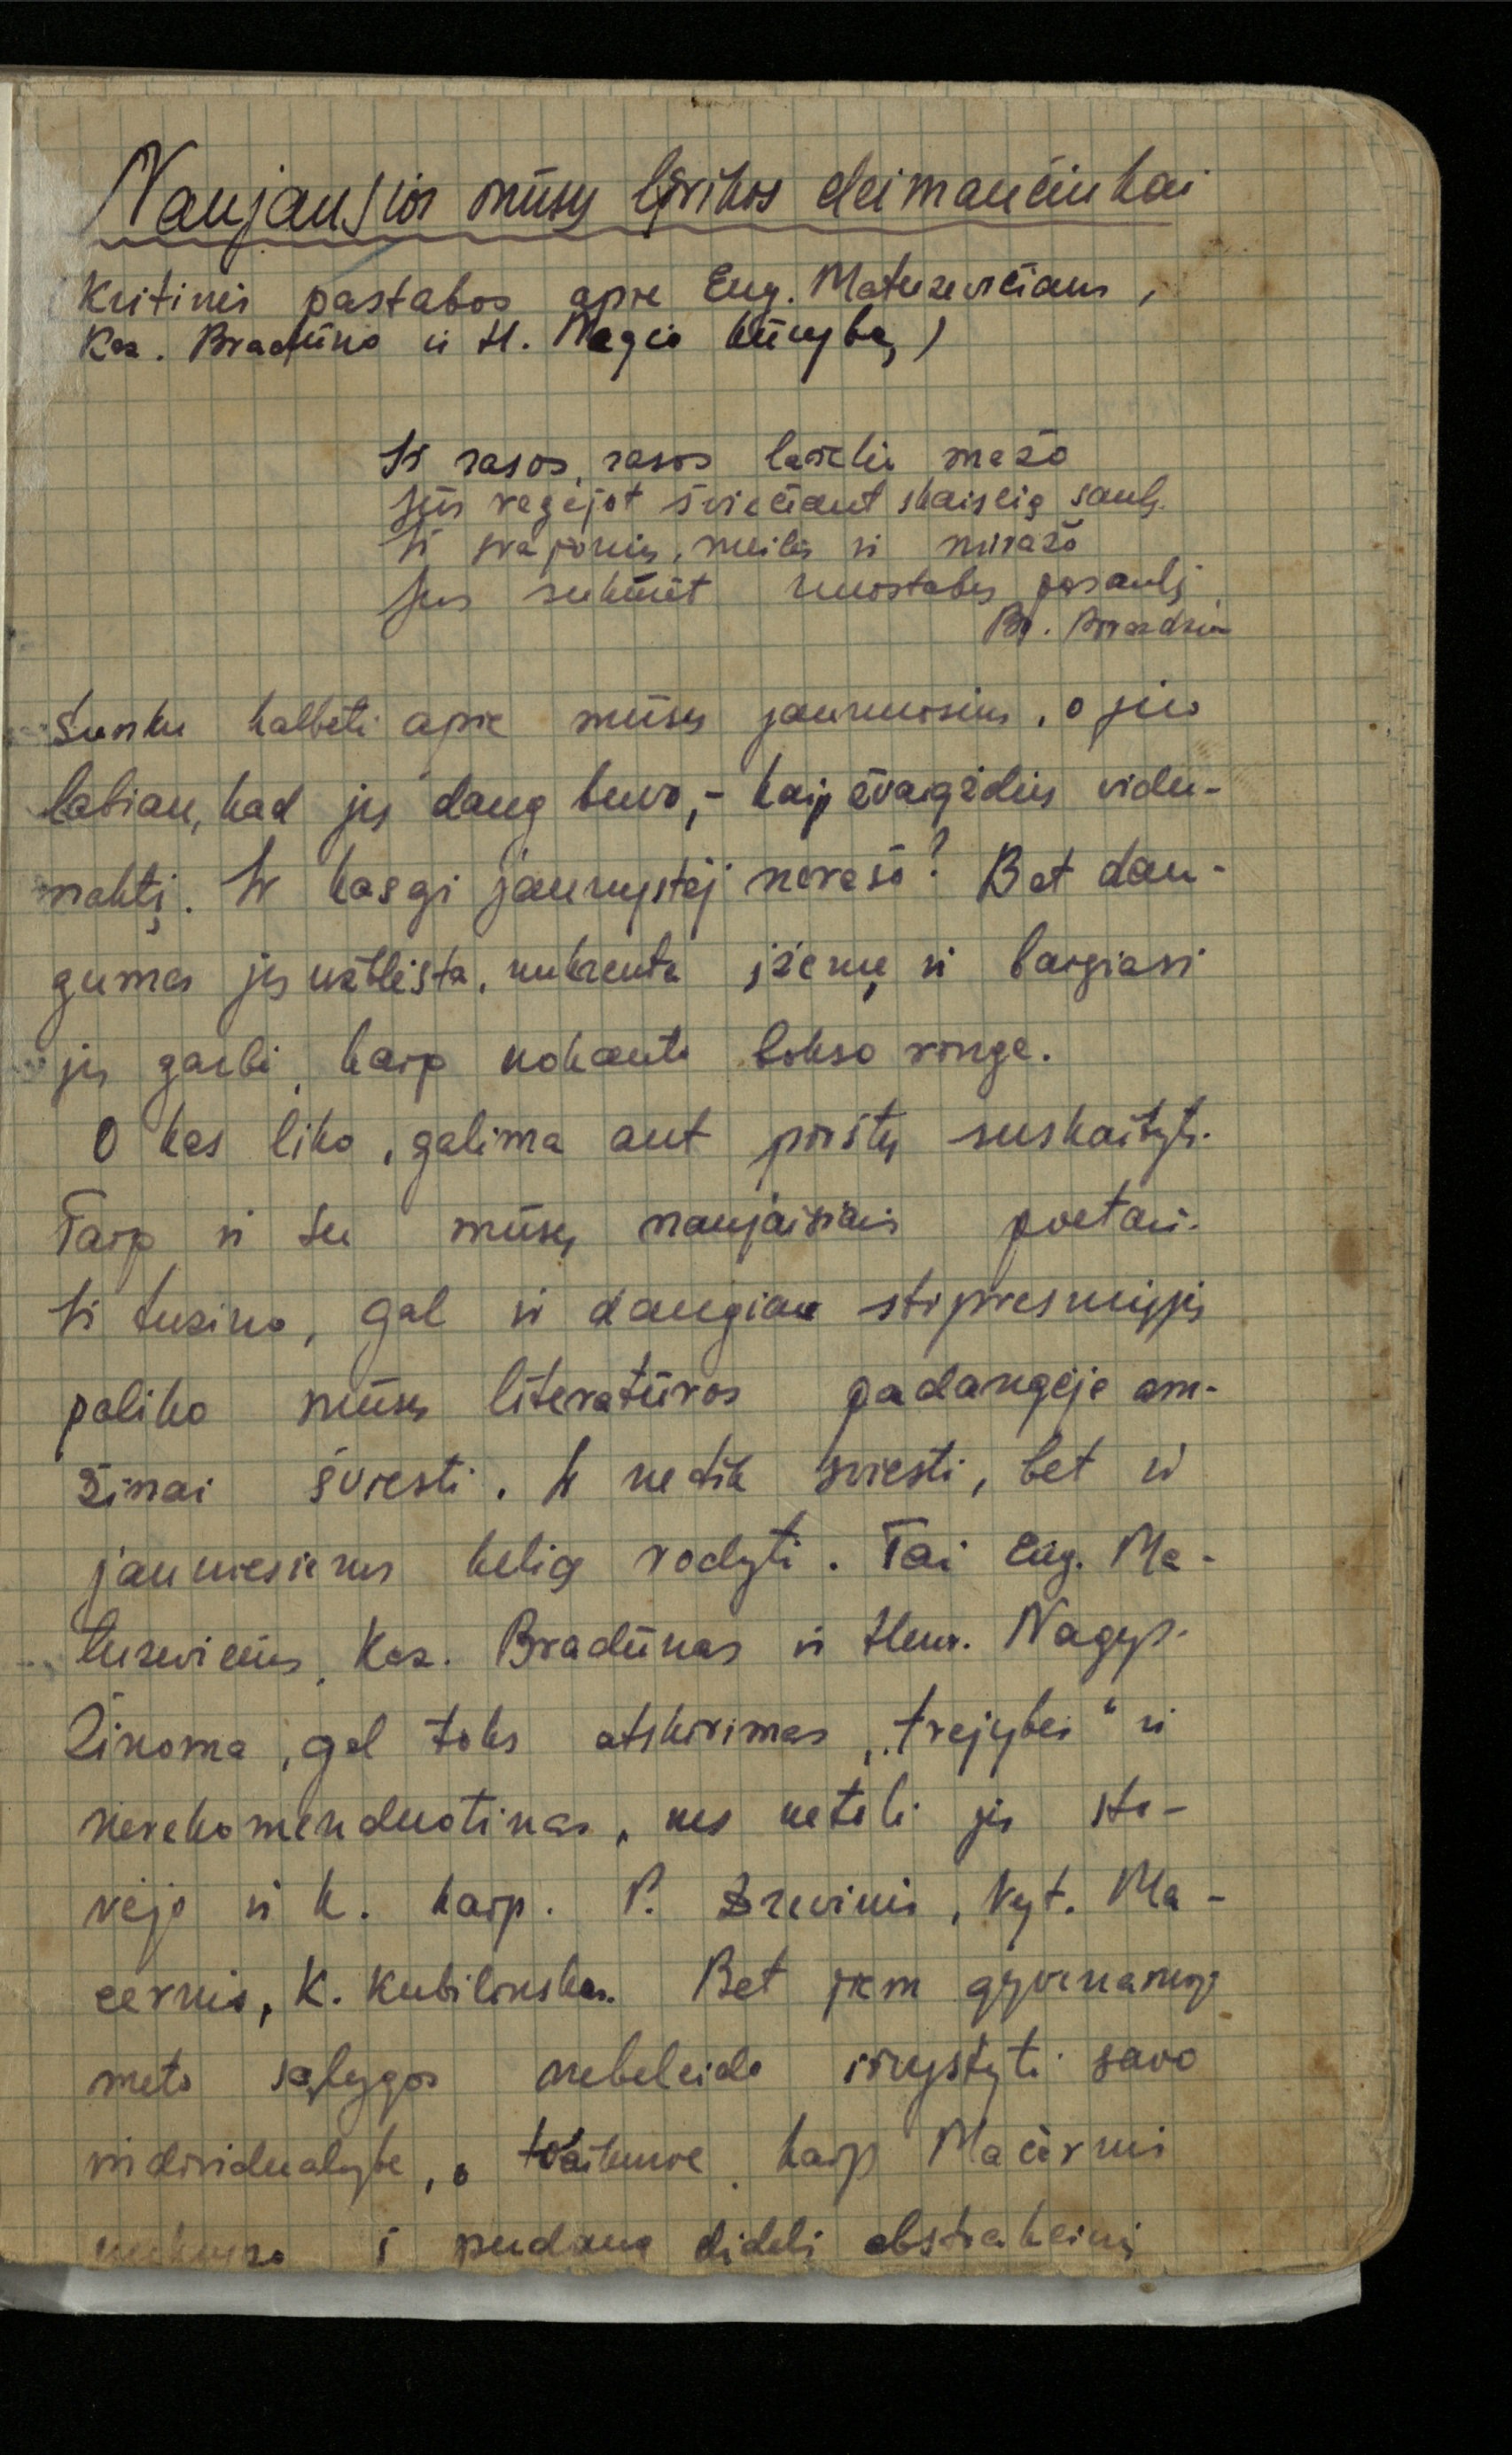 Naujausios mūsų lyrikos deimančiukai
Kritinės pastabos apie Eug. Matuzevičiaus,
Kaz. Bradūno ir H. Nagio kūrybą)
Iš rasos, rasos lašelio mažo
Jūs regėjot šviečiant skaisčią saulę.
Iš svajonių, meilės ir miražo
Jūs sukūrėt nuostabų pasaulį
Br. Brazdžionis
Sunku kalbėti apie mūsų jaunuosius, o juo
labiau, kad jų daug buvo, - kaip žvaigždžių vidu-
naktį. Ir kasgi jaunystėj nerašo? Bet dau-
guma jų užblęsta, nukrenta įžemę ir baigiasi
jų garbė, kaip nokauto bokso ringe.
O kas liko, galima ant pirštų suskaityti.
Taip ir su mūsų naujaisiais poetais.
Iš tuzino, gal ir daugiau stipresniųjų
paliko mūsų literatūros padangėje am-
žinai šviesti. Ir netik šviesti, bet ir
jaunesiems kelią rodyti. Tai Eug. Ma-
tuzevičius, Kaz. Bradūnas ir Henr. Nagys.
Žinoma, gal toks atskirimas „trejybės" ir
nerekomenduotinas, nes netoli jų sto-
vėjo ir k. kaip. P. Drevinis, Vyt. Ma-
černis, K. Kubilinskas. Bet jiem gyvenamojo
meto sąlygos nebeleido išvystyti savo
individualybę, o kaip Mačernį
į didelį abstraktinį